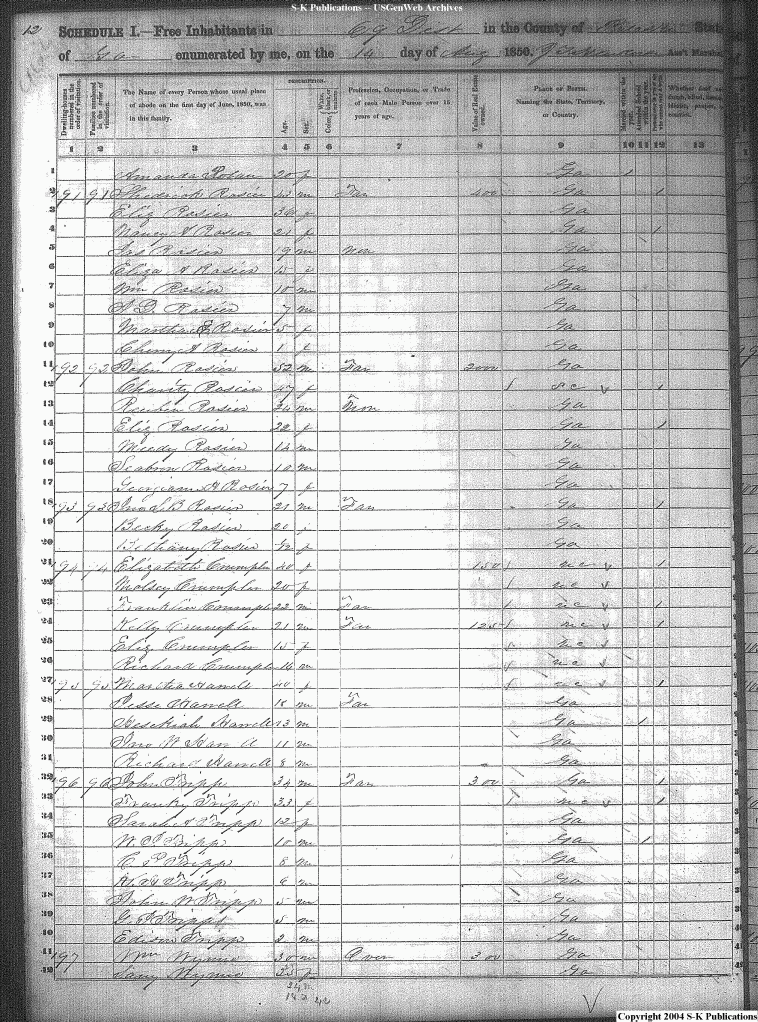 S-K Publications -- USGenWeb Archives
12 SCHEDULE I.—Free Inhabitants in 69 Dist in the County of Pulaski State
of Ga enumerated by me, on the 14 day of Aug 1850. Ass't Marshal
Dwelling-houses numbered in the order of visitation.
Families numbered in the order of visitation.
The Name of every Person whose usual place of abode on the first day of June, 1850, was in this family.
DESCRIPTION.
Age.
Sex.
Color, White, black, or mulatto.
Profession, Occupation, or Trade of each Male Person over 15 years of age.
Value of Real Estate owned.
PLACE OF BIRTH. Naming the State, Territory, or Country.
Married within the year.
Attended School within the year.
Whether deaf and dumb, blind, insane, idiotic, pauper, or convict.
1 2 3 4 5 6 7 8 9 10 11 12 13
1 Amanda Rosier 20 f Ga 1
2 91 91 Shedrick Rosier 45 m Far 400 Ga 1
3 Eliz Rosier f Ga
4 Nancy A Rosier 21 f Ga 1
5 Jas Rosier 19 m Non Ga
6 Eliza A Rosier 15 Ga
7 Wm Rosier 10 m Ga
8 A D. Rosier 7 m Ga
9 Martha E Rosier 5 f Ga
10 Rosier 1 f Ga
11 92 92 John Rosier 52 m Far 2000 Ga
12 Charity Rosier 47 f / s c v 1
13 Reuben Rosier 24 m Non Ga
14 Eliz Rosier 22 f Ga 1
15 Rosier 14 m Ga
16 Seaborn Rosier 10 m Ga
17 Georgiann A Rosier 7 f Ga
18 93 93 B Rosier 21 m Far Ga 1
19 Becky Rosier 20 Ga
20 Bethany Rosier f Ga
21 94 94 Elizabeth Crumpler 40 f 150 / n c v 1
22 Molsey Crumpler 20 f / n c v
23 Franklin Crumpler 22 m Far / n c v 1
24 Kelly Crumpler 21 m Far 125 / n c v 1
25 Eliz Crumpler 15 f n c v
26 Richard Crumpler 14 m n c v
27 95 95 Martha Harrell 40 f n c v 1
28 Jesse Harrell 18 m Far Ga
29 Hesekiah Harrell 13 m Ga 1
30 Jno W Harrell 11 m Ga
31 Richard Harrell 8 m Ga
32 96 96 John Tripp 34 m Far 300 Ga 1
33 Franky Tripp 33 f / n c v 1
34 Sarah A Tripp 12 f Ga
35 W Tripp 10 m Ga 1
36 C P Tripp 8 m Ga
37 Tripp 6 m Ga
38 John W Tripp 5 m Ga
39 Tripp 5 m Ga
40 Edison Tripp 2 m Ga
41 97 Wm Wynne 30 m Over 300 Ga
42 Wynne f Ga
Copyright 2004 S-K Publications